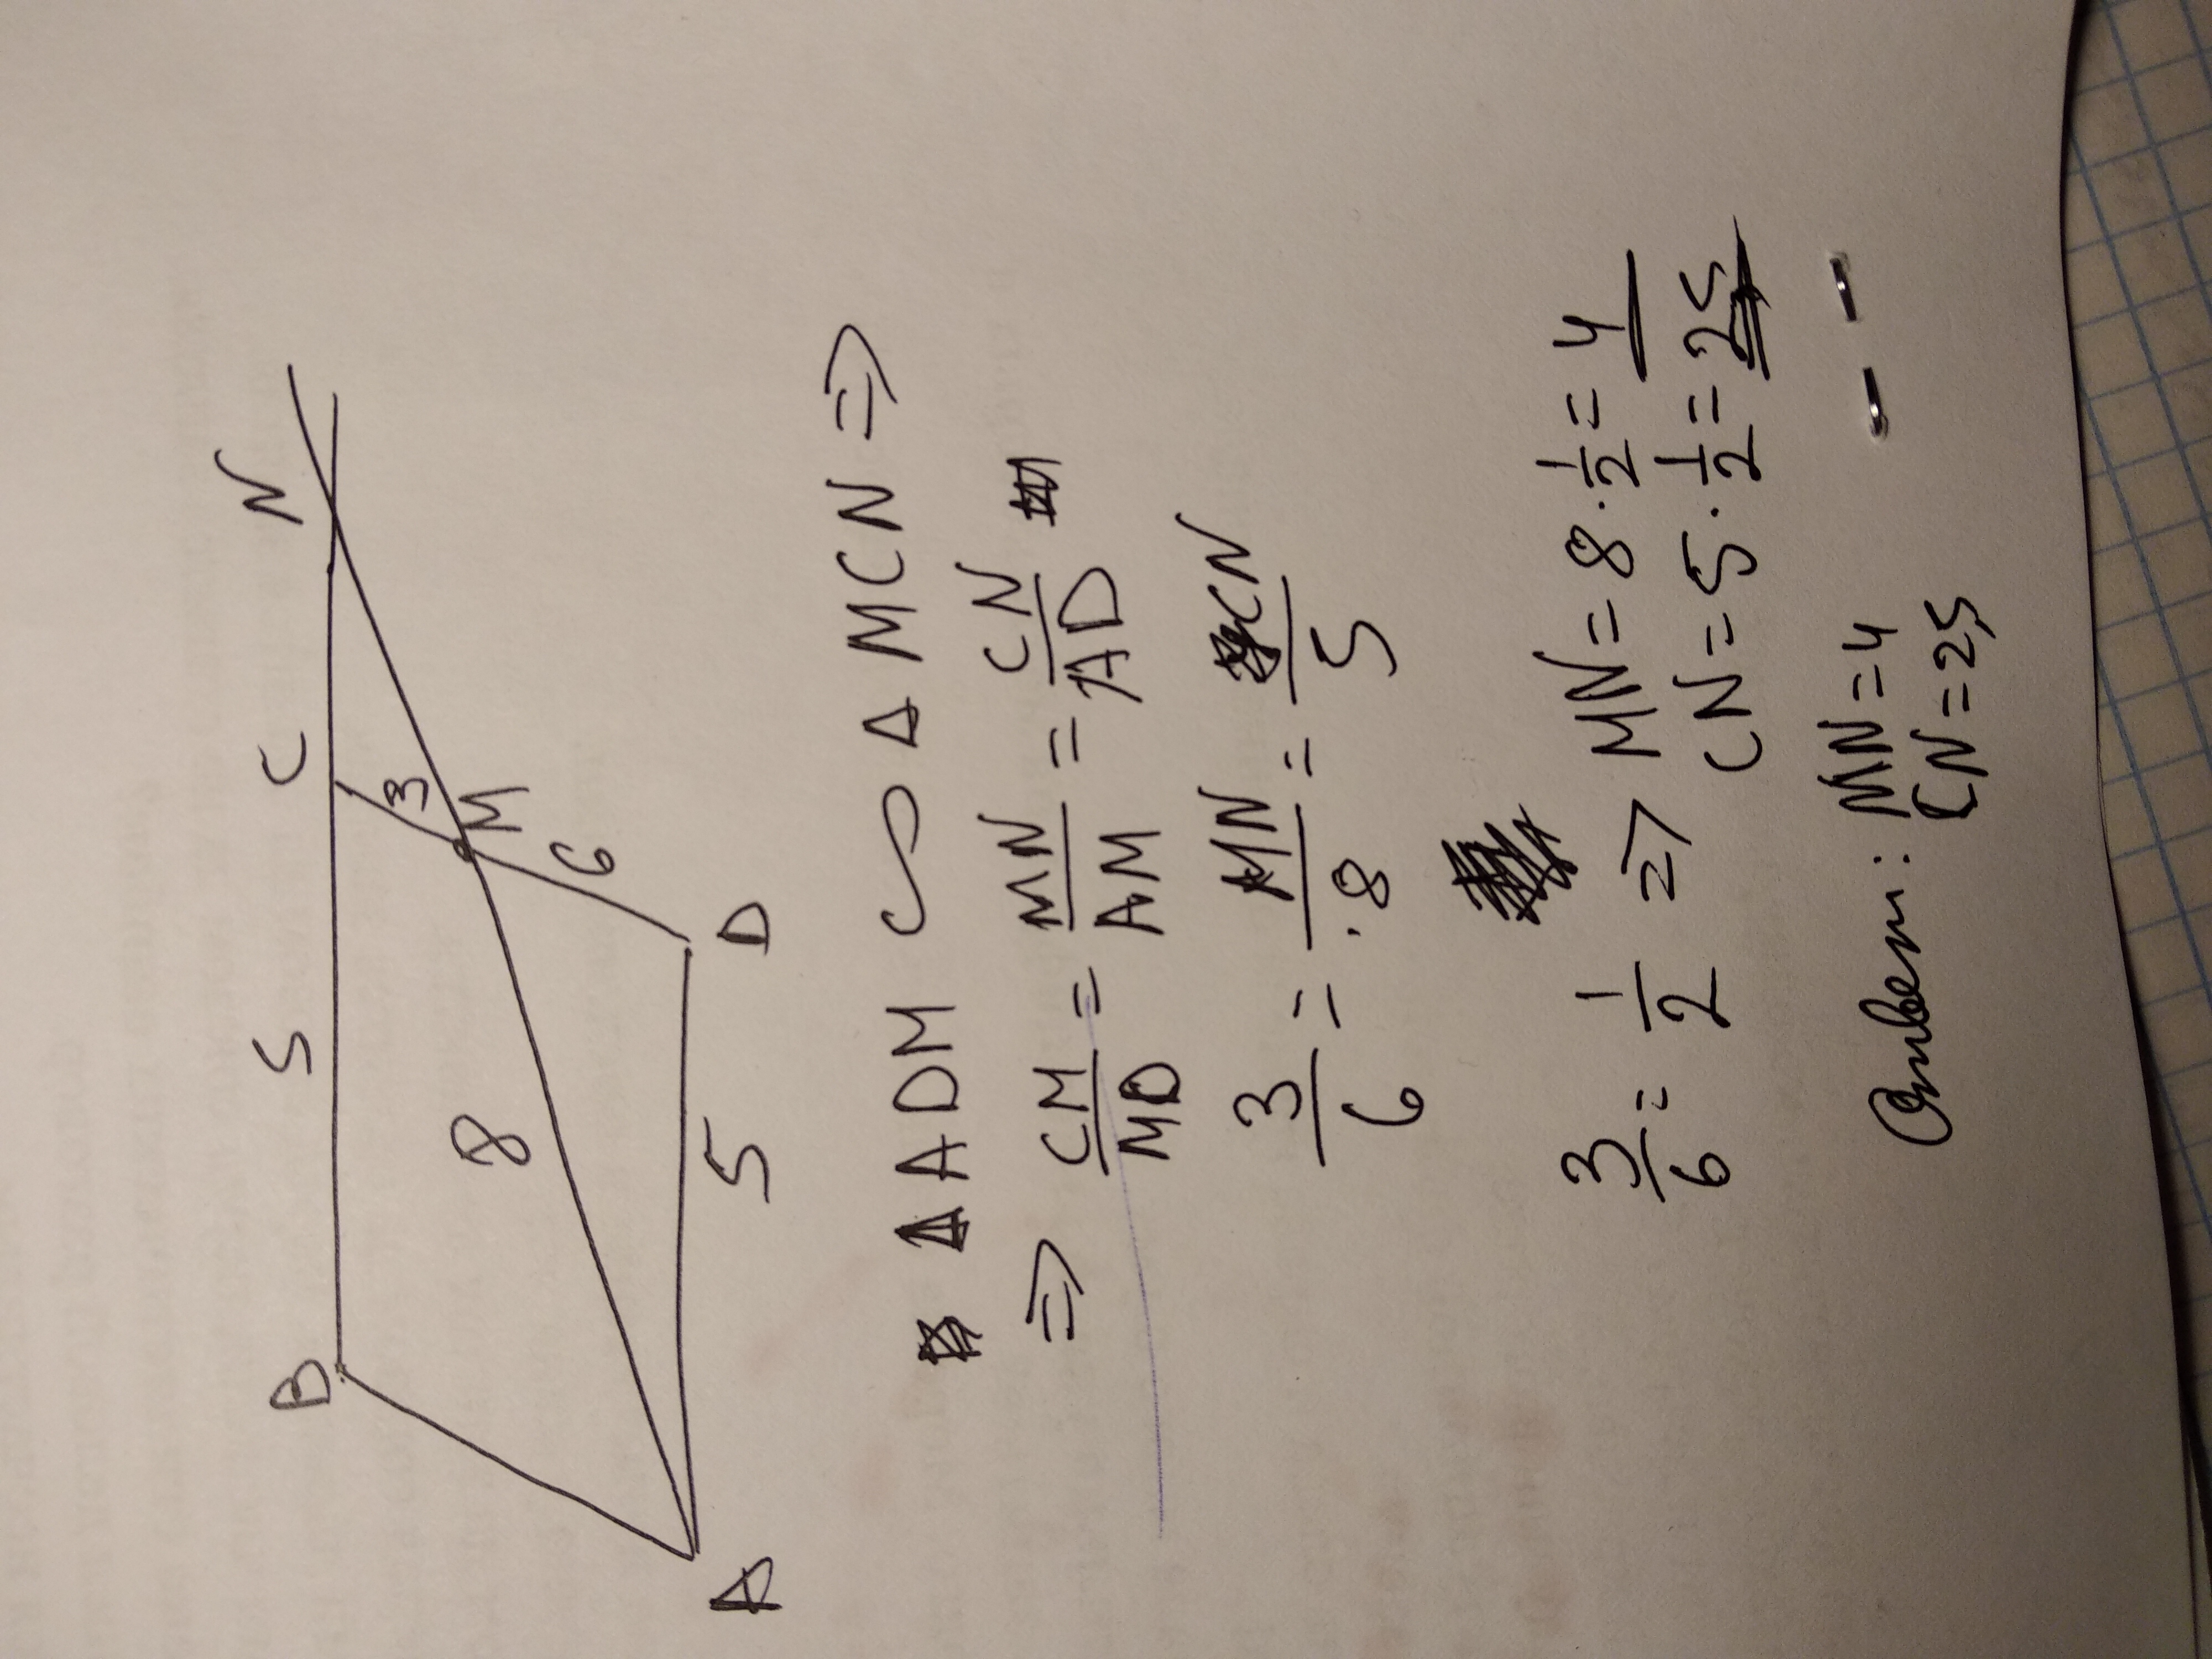 B 5 C N
3
M
8 6
A 5 D
Δ ADM ∽ Δ MCN ⇒
⇒ CM/MD = MN/AM = CN/AD
3/6 = MN/8 = CN/5
3/6 = 1/2 ⇒ MN = 8 · 1/2 = 4
CN = 5 · 1/2 = 2,5
Ответ: MN = 4
CN = 2,5